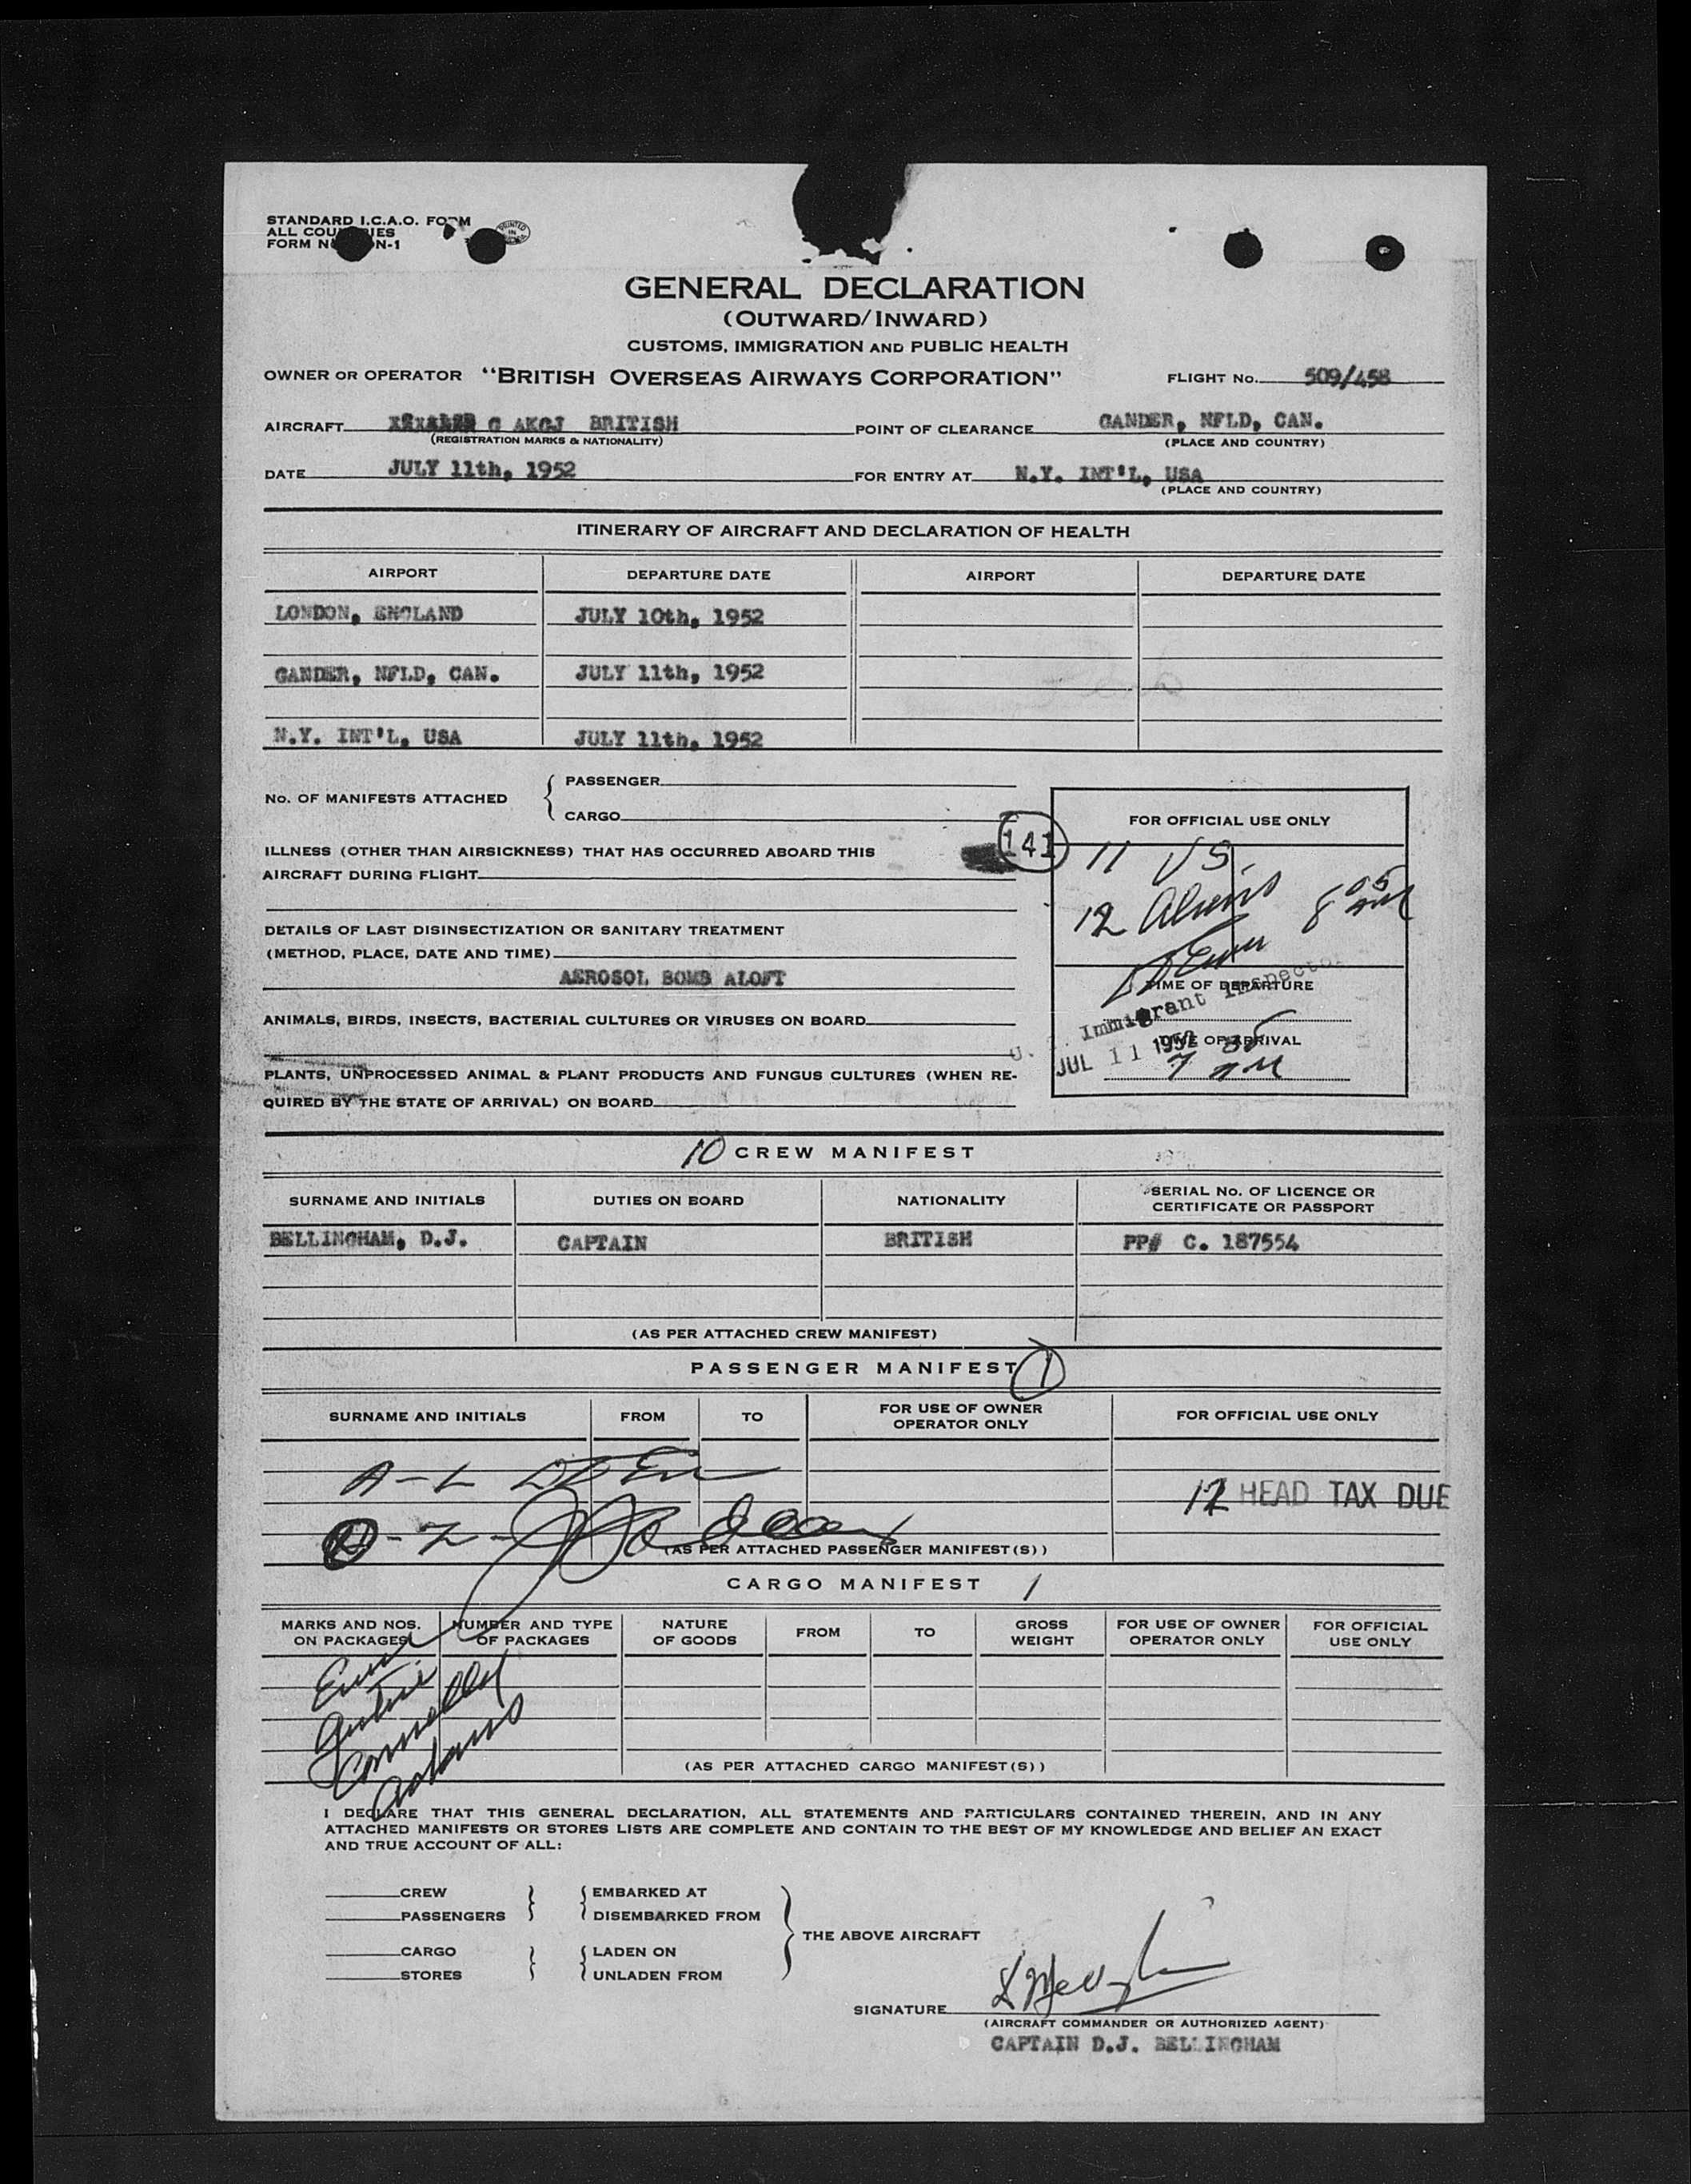 STANDARD I.C.A.O. FORM
ALL COUNTRIES
FORM N-1
PRINTED IN
GENERAL DECLARATION
(OUTWARD/INWARD)
CUSTOMS, IMMIGRATION AND PUBLIC HEALTH
OWNER OR OPERATOR "BRITISH OVERSEAS AIRWAYS CORPORATION" FLIGHT No. 509/458
AIRCRAFT G AKGJ BRITISH POINT OF CLEARANCE GANDER, NFLD, CAN.
(REGISTRATION MARKS & NATIONALITY) (PLACE AND COUNTRY)
DATE JULY 11th, 1952 FOR ENTRY AT N.Y. INT'L, USA
(PLACE AND COUNTRY)
ITINERARY OF AIRCRAFT AND DECLARATION OF HEALTH
AIRPORT DEPARTURE DATE AIRPORT DEPARTURE DATE
LONDON, ENGLAND JULY 10th, 1952
GANDER, NFLD, CAN. JULY 11th, 1952
N.Y. INT'L, USA JULY 11th, 1952
No. OF MANIFESTS ATTACHED { PASSENGER
CARGO
141
ILLNESS (OTHER THAN AIRSICKNESS) THAT HAS OCCURRED ABOARD THIS
AIRCRAFT DURING FLIGHT
DETAILS OF LAST DISINSECTIZATION OR SANITARY TREATMENT
(METHOD, PLACE, DATE AND TIME)
AEROSOL BOMB ALOFT
ANIMALS, BIRDS, INSECTS, BACTERIAL CULTURES OR VIRUSES ON BOARD
PLANTS, UNPROCESSED ANIMAL & PLANT PRODUCTS AND FUNGUS CULTURES (WHEN RE-
QUIRED BY THE STATE OF ARRIVAL) ON BOARD
FOR OFFICIAL USE ONLY
11 US
12 Aliens 8 05
TIME OF DEPARTURE
U. S. Immigrant Inspector
TIME OF ARRIVAL
JUL 11 1952
7 35
10 CREW MANIFEST
SURNAME AND INITIALS DUTIES ON BOARD NATIONALITY SERIAL No. OF LICENCE OR
CERTIFICATE OR PASSPORT
BELLINGHAM, D.J. CAPTAIN BRITISH PP# C. 187554
(AS PER ATTACHED CREW MANIFEST)
PASSENGER MANIFEST 1
SURNAME AND INITIALS FROM TO FOR USE OF OWNER
OPERATOR ONLY FOR OFFICIAL USE ONLY
A-L
12 HEAD TAX DUE
-Z-
(AS PER ATTACHED PASSENGER MANIFEST(S))
CARGO MANIFEST 1
MARKS AND NOS.
ON PACKAGES NUMBER AND TYPE
OF PACKAGES NATURE
OF GOODS FROM TO GROSS
WEIGHT FOR USE OF OWNER
OPERATOR ONLY FOR OFFICIAL
USE ONLY
Connelly
Adams
(AS PER ATTACHED CARGO MANIFEST(S))
I DECLARE THAT THIS GENERAL DECLARATION, ALL STATEMENTS AND PARTICULARS CONTAINED THEREIN, AND IN ANY
ATTACHED MANIFESTS OR STORES LISTS ARE COMPLETE AND CONTAIN TO THE BEST OF MY KNOWLEDGE AND BELIEF AN EXACT
AND TRUE ACCOUNT OF ALL:
CREW } { EMBARKED AT
PASSENGERS DISEMBARKED FROM
THE ABOVE AIRCRAFT
CARGO } { LADEN ON
STORES UNLADEN FROM
SIGNATURE
(AIRCRAFT COMMANDER OR AUTHORIZED AGENT)
CAPTAIN D.J. BELLINGHAM